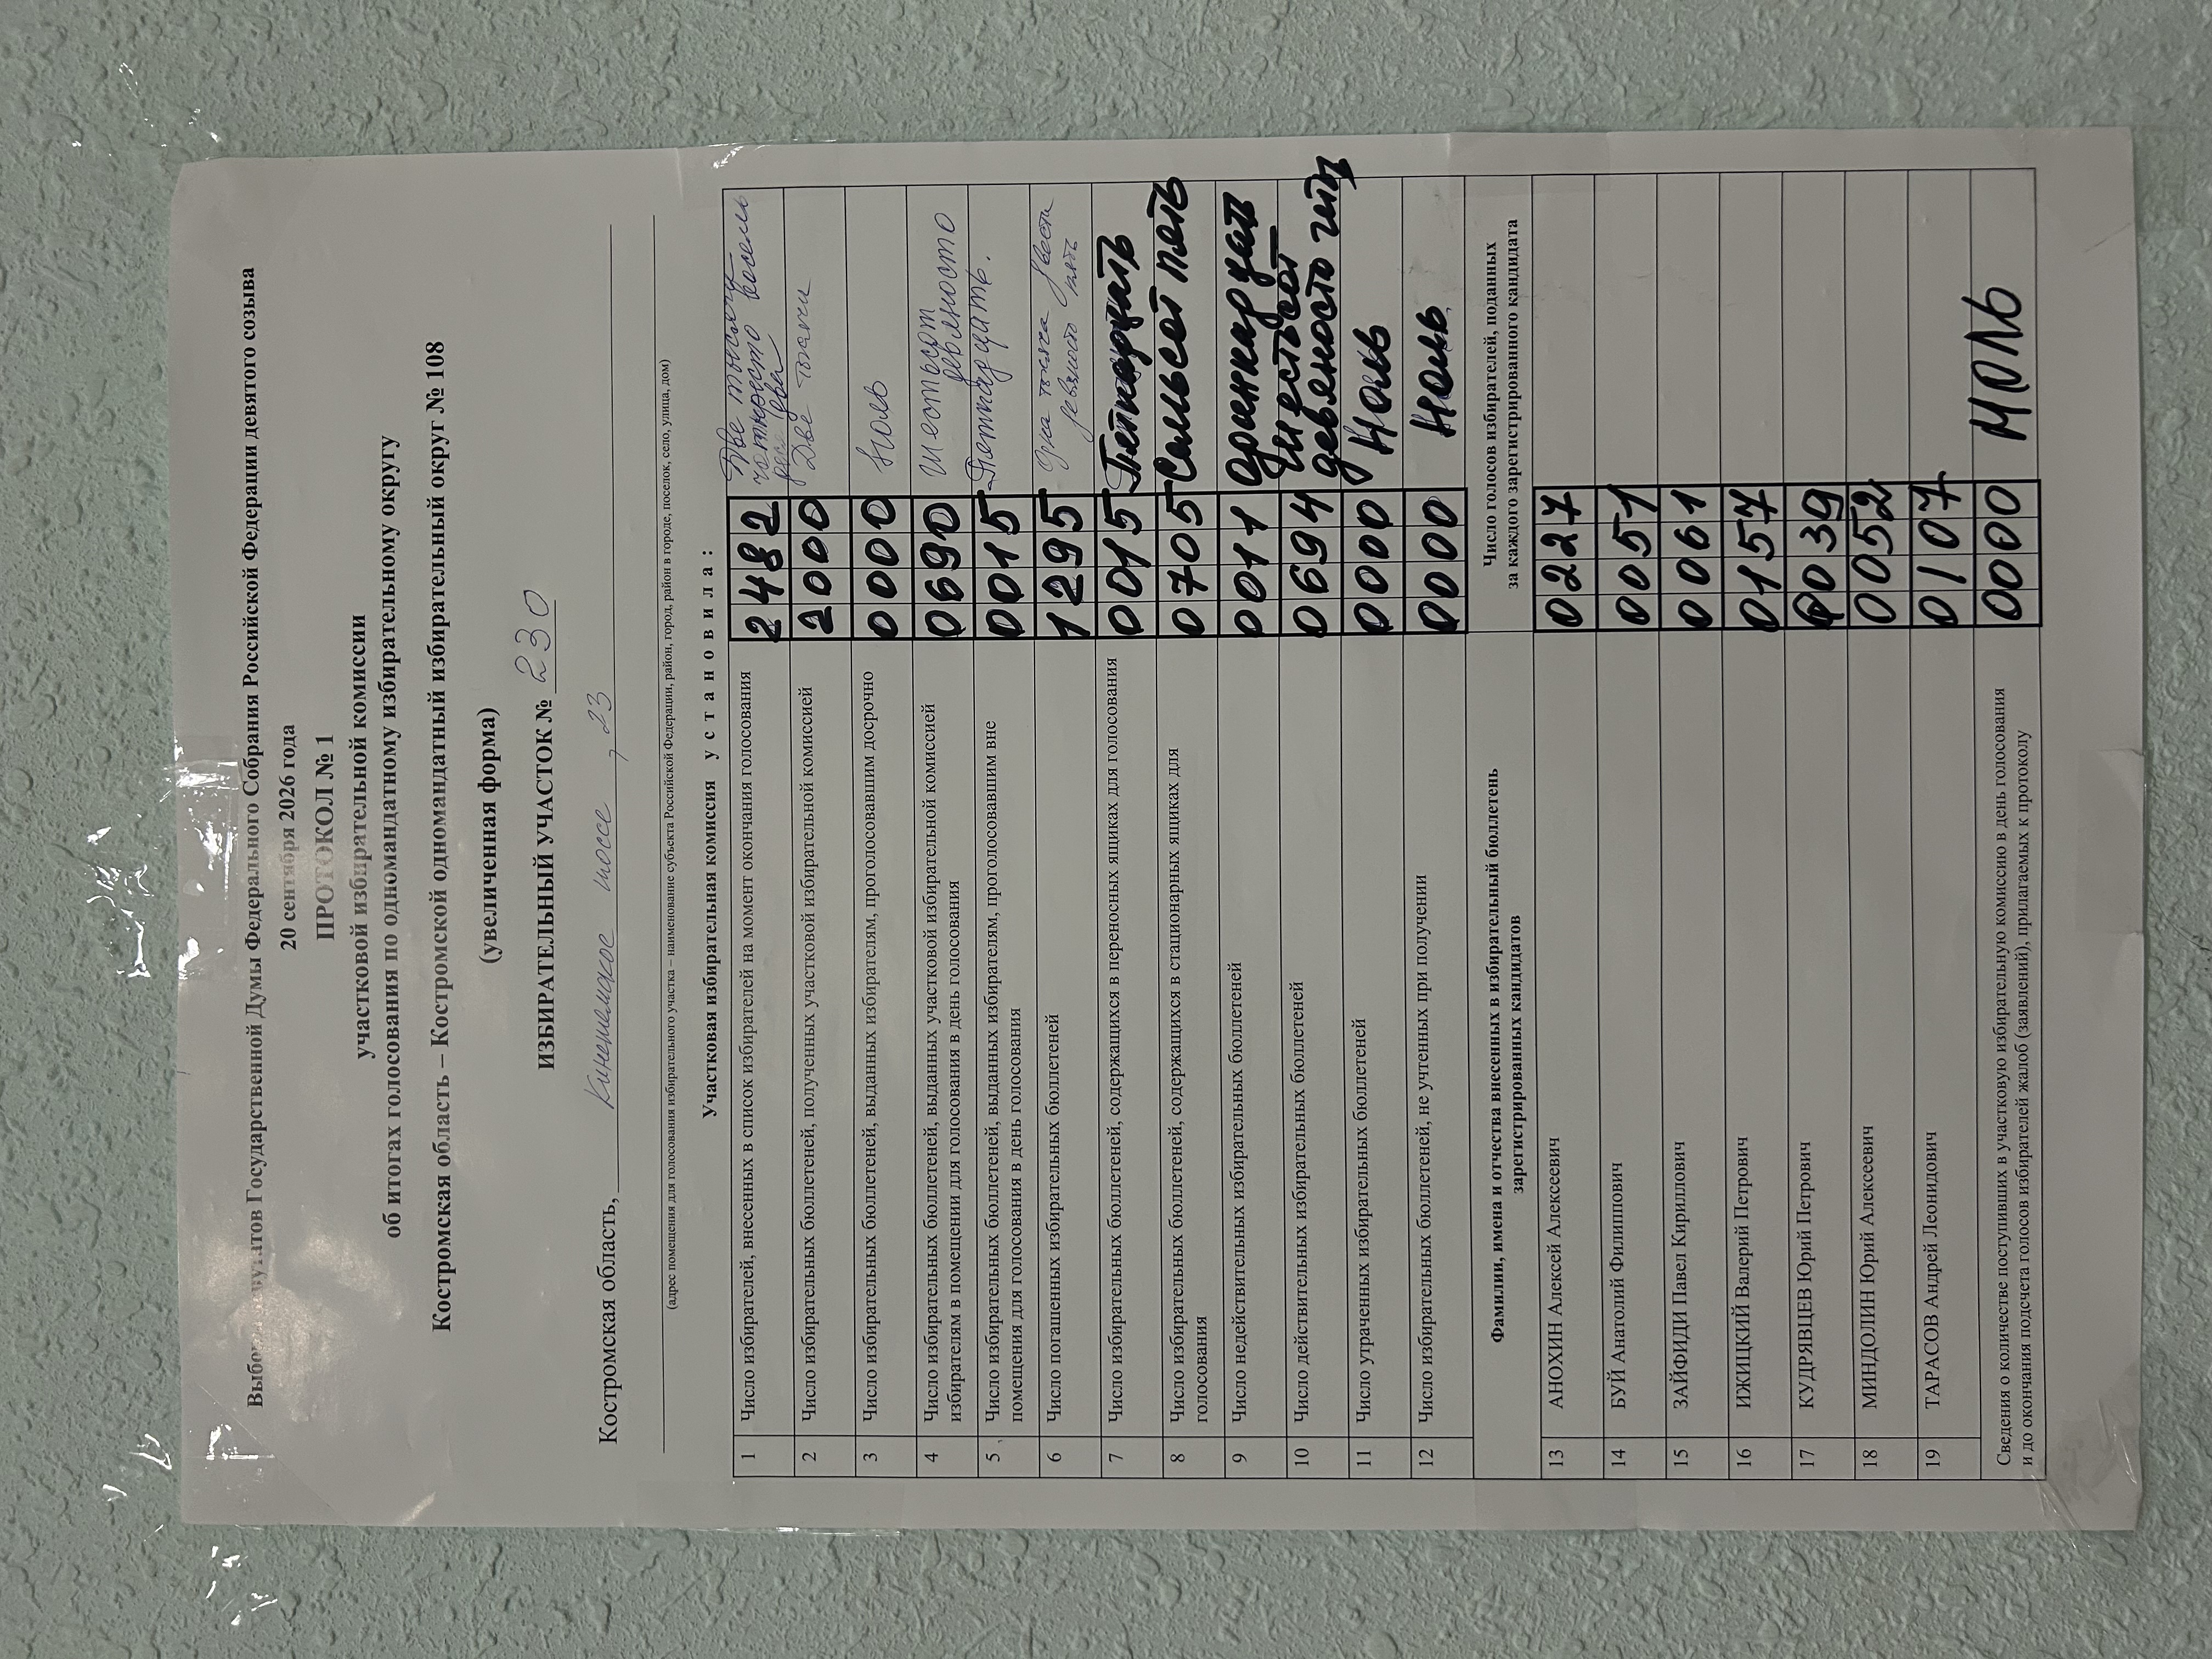 Выборы депутатов Государственной Думы Федерального Собрания Российской Федерации девятого созыва
20 сентября 2026 года
ПРОТОКОЛ № 1
участковой избирательной комиссии
об итогах голосования по одномандатному избирательному округу
Костромская область – Костромской одномандатный избирательный округ № 108
(увеличенная форма)
ИЗБИРАТЕЛЬНЫЙ УЧАСТОК № 230
Костромская область, Кинешемское шоссе, 23
(адрес помещения для голосования избирательного участка – наименование субъекта Российской Федерации, район, город, район в городе, поселок, село, улица, дом)
Участковая избирательная комиссия установила:
1 Число избирателей, внесенных в список избирателей на момент окончания голосования 2482 Две тысячи
четыреста восемь
десят два
2 Число избирательных бюллетеней, полученных участковой избирательной комиссией 2000 Две тысячи
3 Число избирательных бюллетеней, выданных избирателям, проголосовавшим досрочно 0000 Ноль
4 Число избирательных бюллетеней, выданных участковой избирательной комиссией 0690 Шестьсот
избирателям в помещении для голосования в день голосования девяносто
5 Число избирательных бюллетеней, выданных избирателям, проголосовавшим вне 0015 Пятнадцать.
помещения для голосования в день голосования
6 Число погашенных избирательных бюллетеней 1295 Одна тысяча двести
девяносто пять
7 Число избирательных бюллетеней, содержащихся в переносных ящиках для голосования 0015 Пятнадцать
8 Число избирательных бюллетеней, содержащихся в стационарных ящиках для 0705 Семьсот пять
голосования
9 Число недействительных избирательных бюллетеней 0011 Одиннадцать
10 Число действительных избирательных бюллетеней 0694 Шестьсот
девяносто четыре
11 Число утраченных избирательных бюллетеней 0000 Ноль
12 Число избирательных бюллетеней, не учтенных при получении 0000 Ноль.
Фамилии, имена и отчества внесенных в избирательный бюллетень Число голосов избирателей, поданных
зарегистрированных кандидатов за каждого зарегистрированного кандидата
13 АНОХИН Алексей Алексеевич 0227
14 БУЙ Анатолий Филиппович 0051
15 ЗАЙФИДИ Павел Кириллович 0061
16 ИЖИЦКИЙ Валерий Петрович 0157
17 КУДРЯВЦЕВ Юрий Петрович 0039
18 МИНДОЛИН Юрий Алексеевич 0052
19 ТАРАСОВ Андрей Леонидович 0107
Сведения о количестве поступивших в участковую избирательную комиссию в день голосования 0000 НОЛЬ
и до окончания подсчета голосов избирателей жалоб (заявлений), прилагаемых к протоколу